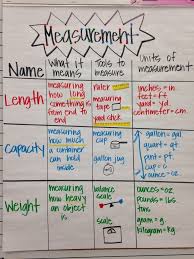 Measurement
Name
What it means
Tools to measure
Units of measurement
Length
measuring
how long
something is
from end
to end
ruler
measuring
tape
yard stick
inches = in.
feet = ft.
yard = yd.
centimeter = cm.
Capacity
measuring
how much
a container
can hold
inside
measuring
cup
gallon jug
gallon = gal.
quart = qt.
pint = pt.
cup = c
ounce = oz.
Weight
measuring
how heavy
an object
is
balance
scale
scale
ounces = oz.
pounds = lbs
tons
gram = g.
kilogram = kg.